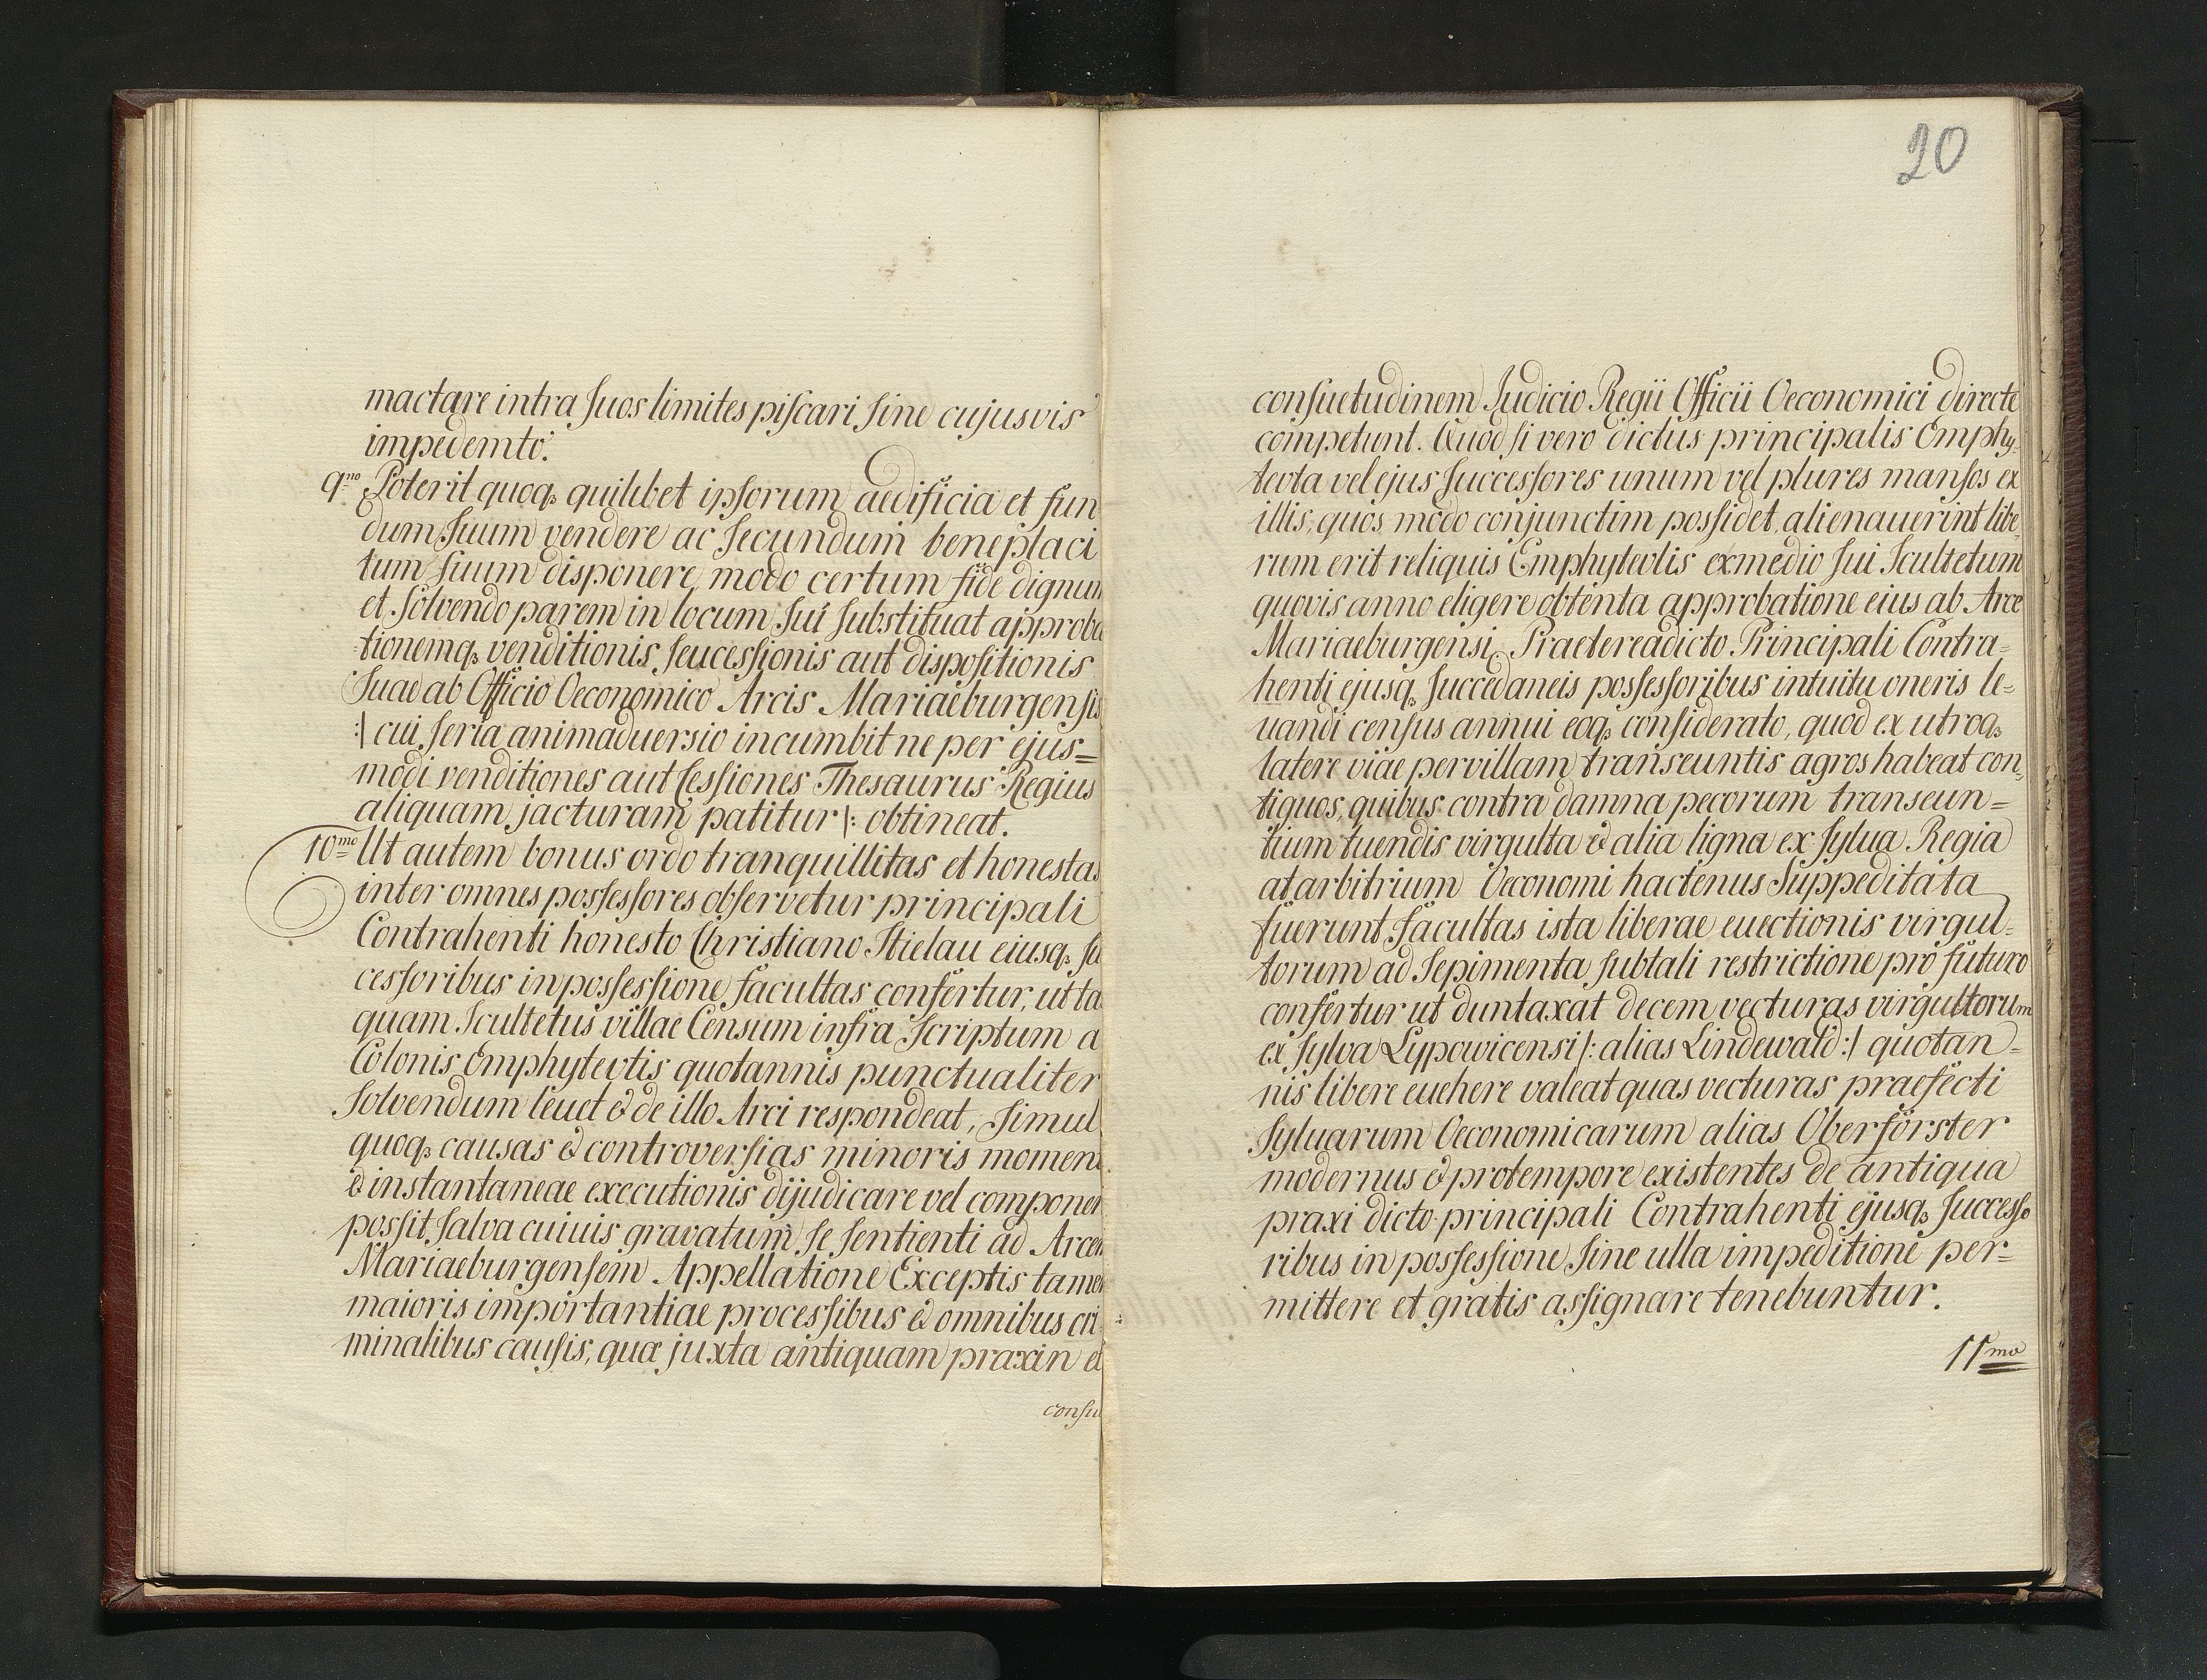 mactare intra suos limites piscari sine cujusvis
impedemto.
9no Poterit quoq, quilibet ipsorum aedificia et fun
dum suum vendere ac secundum beneplaci
tum suum disponere, modo certum fide dignum
et solvendo parem in locum sui substituat approba
tionemq, venditionis seucessionis aut dispositionis
suae ab Officio Oeconomico Arcis Mariaeburgensis
:/ cui seria animaduersio incumbit ne per ejus=
modi venditiones aut Cessiones Thesaurus Regius
aliquam jacturam patitur /: obtineat.
10mo Ut autem bonus ordo tranquillitas et honestas
inter omnes possessores observetur principali
Contrahenti honesto Christiano Stielau eiusq, su
cessoribus in possessione facultas confertur, ut ta
quam Scultetus villae Censum infra Scriptum a
Colonis Emphyteutis quotannis punctualiter
solvendum leuet & de illo Arci respondeat, Simul
quoq, causas & controversias minoris momen
& instantaneae executionis dijudicare vel componer
possit salva cuiuis gravatum se sentienti ad Arcem
Mariaeburgensem Appellatione Exceptis tamen
maioris importantiae processibus & omnibus cri
minalibus causis, quae juxta antiquam praxin et
consu
20
consuetudinem Judicio Regii Officii Oeconomici directe
competunt. Quod si vero dictus principalis Emphy
teuta vel ejus successores unum vel plures mansos ex
illis, quos modo conjunctim possidet, alienauerint libe,
rum erit reliquis Emphyteutis exmedio sui Scultetum
quovis anno eligere obtenta approbatione eius ab Arce
Mariaeburgensi. Praetereadicto Principali Contra=
henti ejusq, succedaneis possessoribus intuitu oneris le=
uandi census annui eoq, considerato, quod ex utroq,
latere viae per villam transeuntis agros habeat con,
tiguos, quibus contra damna pecorum transeun=
tium tuendis virgulta & alia ligna ex sylua Regia
at arbitrium Oeconomi hactenus suppeditata
fuerunt Facultas ista liberae euectionis virgul=
torum ad Sepimenta subtali restrictione pro futuro
confertur ut duntaxat decem vecturas virgultorum
ex sylva Lypowicensi /: alias Lindewald :/ quotan=
nis libere euehere valeat quas vecturas praefecti
syluarum Oeconomicarum alias Oberförster
modernus & protempore existentes de antiqua
praxi dicto principali Contrahenti ejusq, successo
ribus in possessione sine ulla impeditione per=
mittere et gratis assignare tenebuntur.
11mo